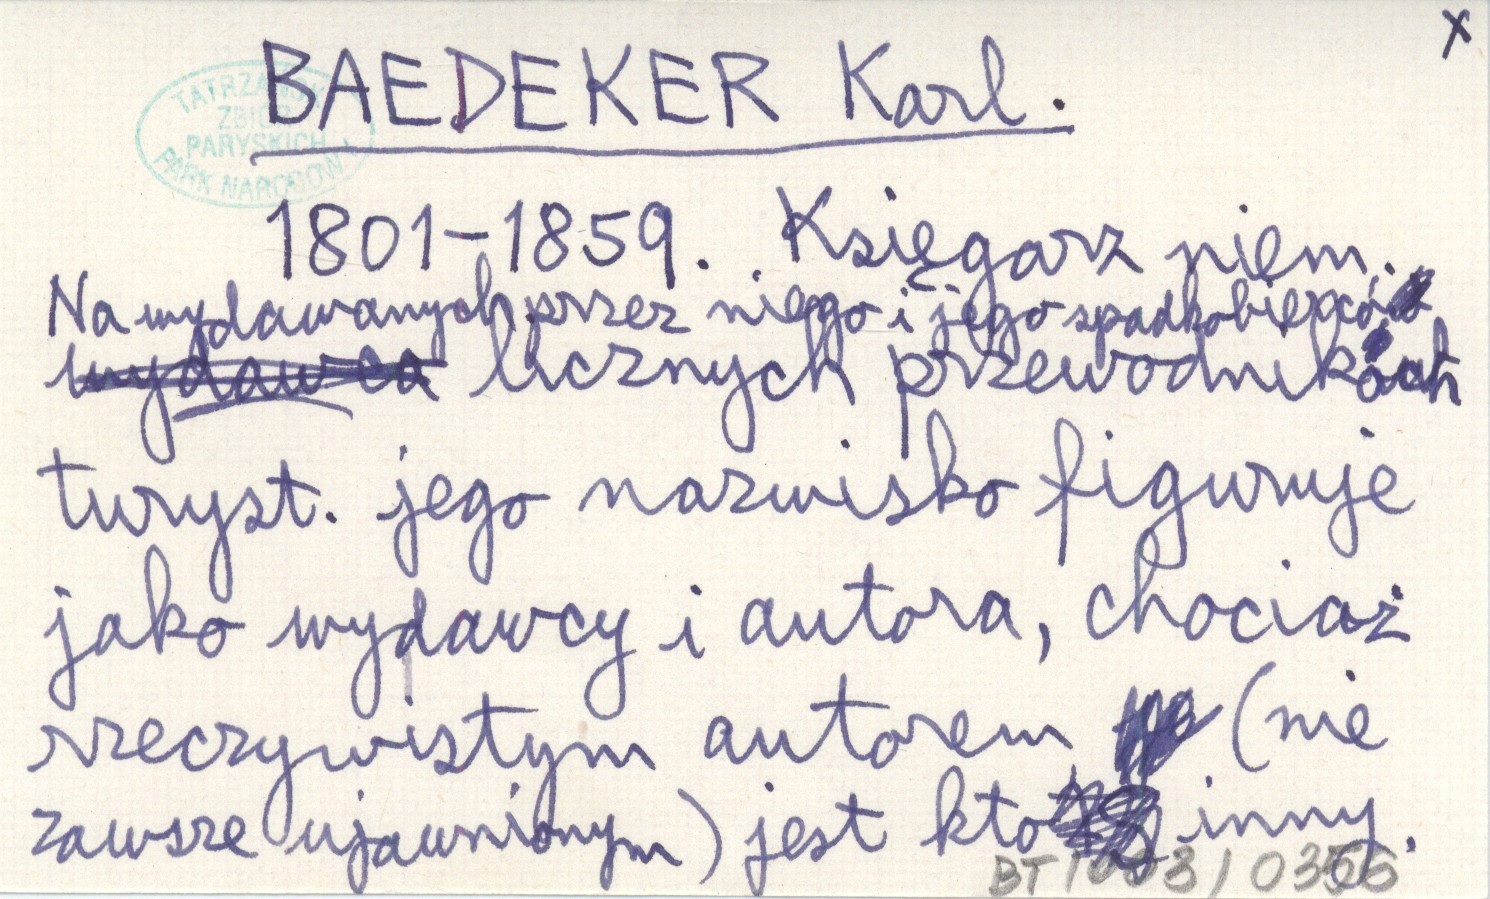 x
BAEDEKER Karl.
TATRZAŃSKI
ZBIORY
PARYSKICH
PARK NARODOWY
1801-1859. Księgarz niem.
Na wydawanych przez niego i jego spadkobierców
wydawca licznych przewodnikach
turyst. jego nazwisko figuruje
jako wydawcy i autora, chociaż
rzeczywistym autorem (nie
zawsze ujawnionym) jest kto inny.